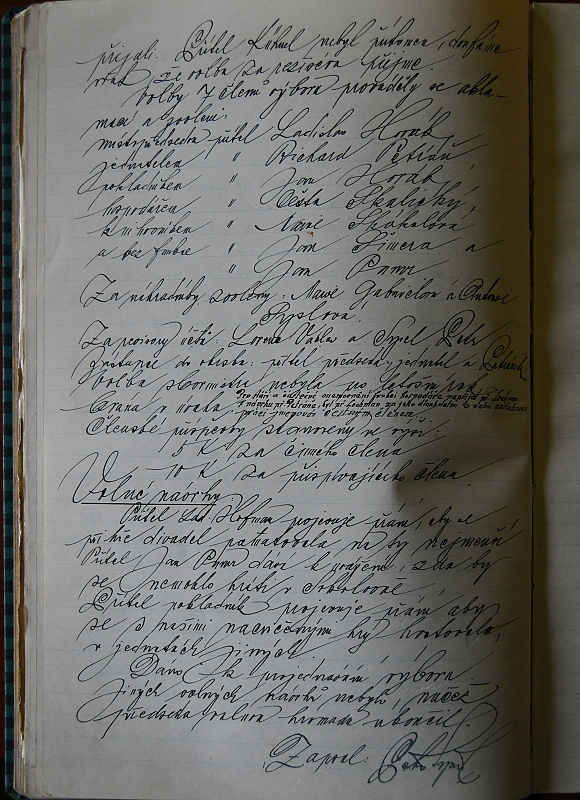 přijali. Přítel Kühnel nebyl přítomen, doufáme
však že volba za revisora přijme.
Volby 7 členů výboru prováděly se akla-
mací a zvoleni:
místopředseda přítel Ladislav Horák,
jednatelem " Richard
pokladníkem " Jan Horák,
hospodářem " Skalický,
knihovníkem " Marie Skákalová
a bez funkce " Jan Šimera a
" Jan
Za náhradníky zvoleny: Marie Gabrielova a
Syslová.
Za revisory účtů: Lorenz Václav a Sysel Petr
zástupci do okrsku: přítel předseda, jednatel a
Volba sbormistra nebyla po letošní rok
brána v úvahu.
Členské příspěvky stanoveny ve výši:
5 K za činného člena
10 K za přispívajícího člena.
Volné návrhy.
Přítel Lad. Hofman projevuje přání, aby se
při hře divadel pamatovalo na ty nejmenší
Přítel Jan dává k uvážení, zda by
se nemohlo hráti v Sokolovně,
Přítel pokladník projevuje přání aby
se s našimi nacvičenými hry hostovalo,
v jednotách jiných.
Dáno k projednání výboru.
Jiných volných návrhů nebylo, načež
předseda valnou hromadu ukončil.
Zapsal: Petr Sysel